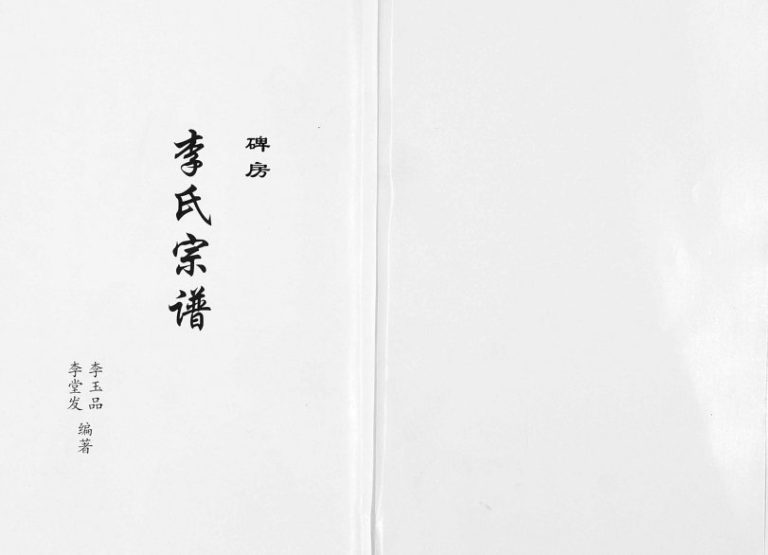 碑房
李氏宗谱
李玉品
李堂发
编著